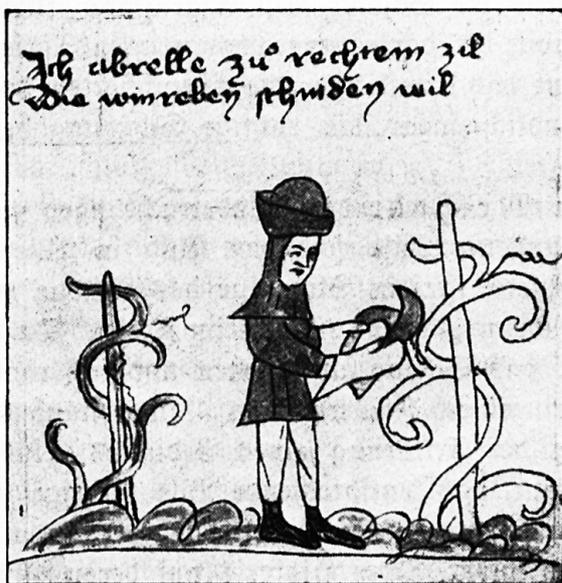 Ich abrelle zů rechtem zil
Die winreben schniden wil